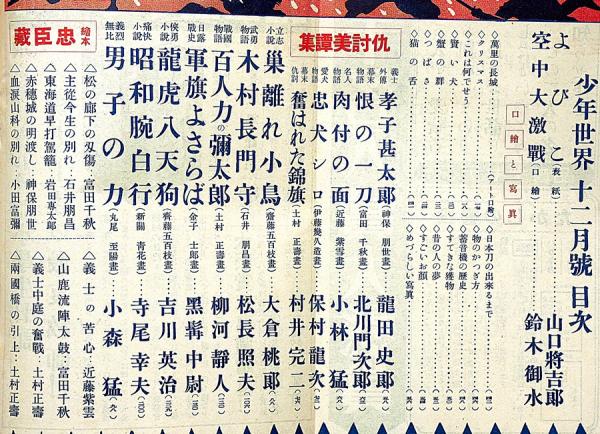 少年世界 十二月號 目次
よびこ(表紙) 山口將吉郎
空中大激戰(口繪) 鈴木御水
口繪と寫眞
△萬里の長城
△クリスマス
△これは何でせう
△賢い犬
△蟹の群
△つばさ
△猫の舌
△日本刀の出來るまで
△物のかつぎ方
△蓄音機の歴史
△すてきな獲物
△昔の人の夢
△すごいお顔
△めづらしい寫眞
仇討美譚集
義士外傳 孝子甚太郎(神保朋世畫) 龍田史郎
幕末物語 恨の一刀(富田千秋畫) 北川門次郎
名人物語 肉付の面(近藤紫雲畫) 小林猛
愛犬物語 忠犬シロ(伊藤幾久造畫) 保村龍次
幕末仇討 奮はれた錦旗(土村正壽畫) 村井完二
立志小説 巣離れ小鳥(齋藤五百枝畫) 大倉桃郎
武勇物語 木村長門守(石井朋昌畫) 松長照夫
戰國物語 百人力の彌太郎(土村正壽畫) 柳河靜人
日露戰史 軍旗よさらば(金子士郎畫) 黑髯中尉
俠勇小説 龍虎八天狗(齋藤五百枝畫) 吉川英治
痛快小説 昭和腕白行(新關青花畫) 寺尾幸夫
義烈無比 男子の力(丸尾至陽畫) 小森猛
繪本 忠臣藏
△松の廊下の刃傷 富田千秋
△主從今生の別れ 石井朋昌
△東海道早打駕籠 岩田専太郎
△赤穗城の明渡し 神保朋世
△血涙山科の別れ 小田富彌
△義士の苦心 近藤紫雲
△山鹿流陣太鼓 富田千秋
△義士中庭の奮戰 土村正壽
△兩國橋の引上 土村正壽